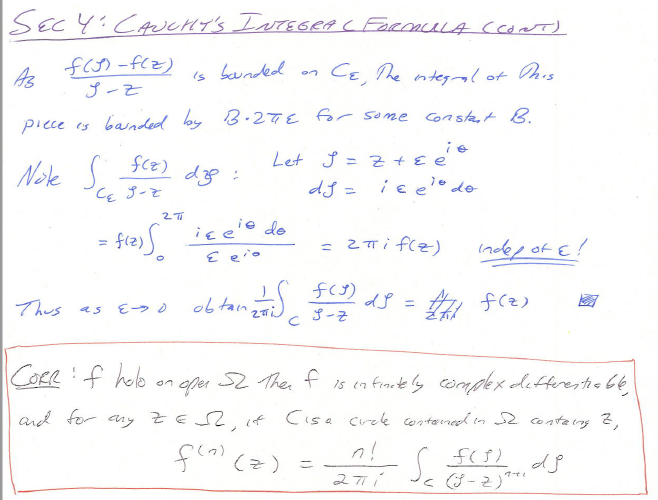 SEC 4: CAUCHY'S INTEGRAL FORMULA (CONT)
As (f(ζ)-f(z))/(ζ-z) is bounded on C_ε, The integral of This
piece is bounded by B·2πε for some constant B.
Note ∫_{C_ε} f(z)/(ζ-z) dζ : Let ζ = z + εe^{iθ}
dζ = iεe^{iθ}dθ
= f(z) ∫_0^{2π} iεe^{iθ}dθ / εe^{iθ} = 2πi f(z) indep of ε!
Thus as ε→0 obtain 1/2πi ∫_C f(ζ)/(ζ-z) dζ = f(z)
CORR: f holo on open Ω Then f is infinitely complex differentiable,
and for any z ∈ Ω, if C is a circle contained in Ω containg z,
f^{(n)}(z) = n!/2πi ∫_C f(ζ)/(ζ-z)^{n+1} dζ